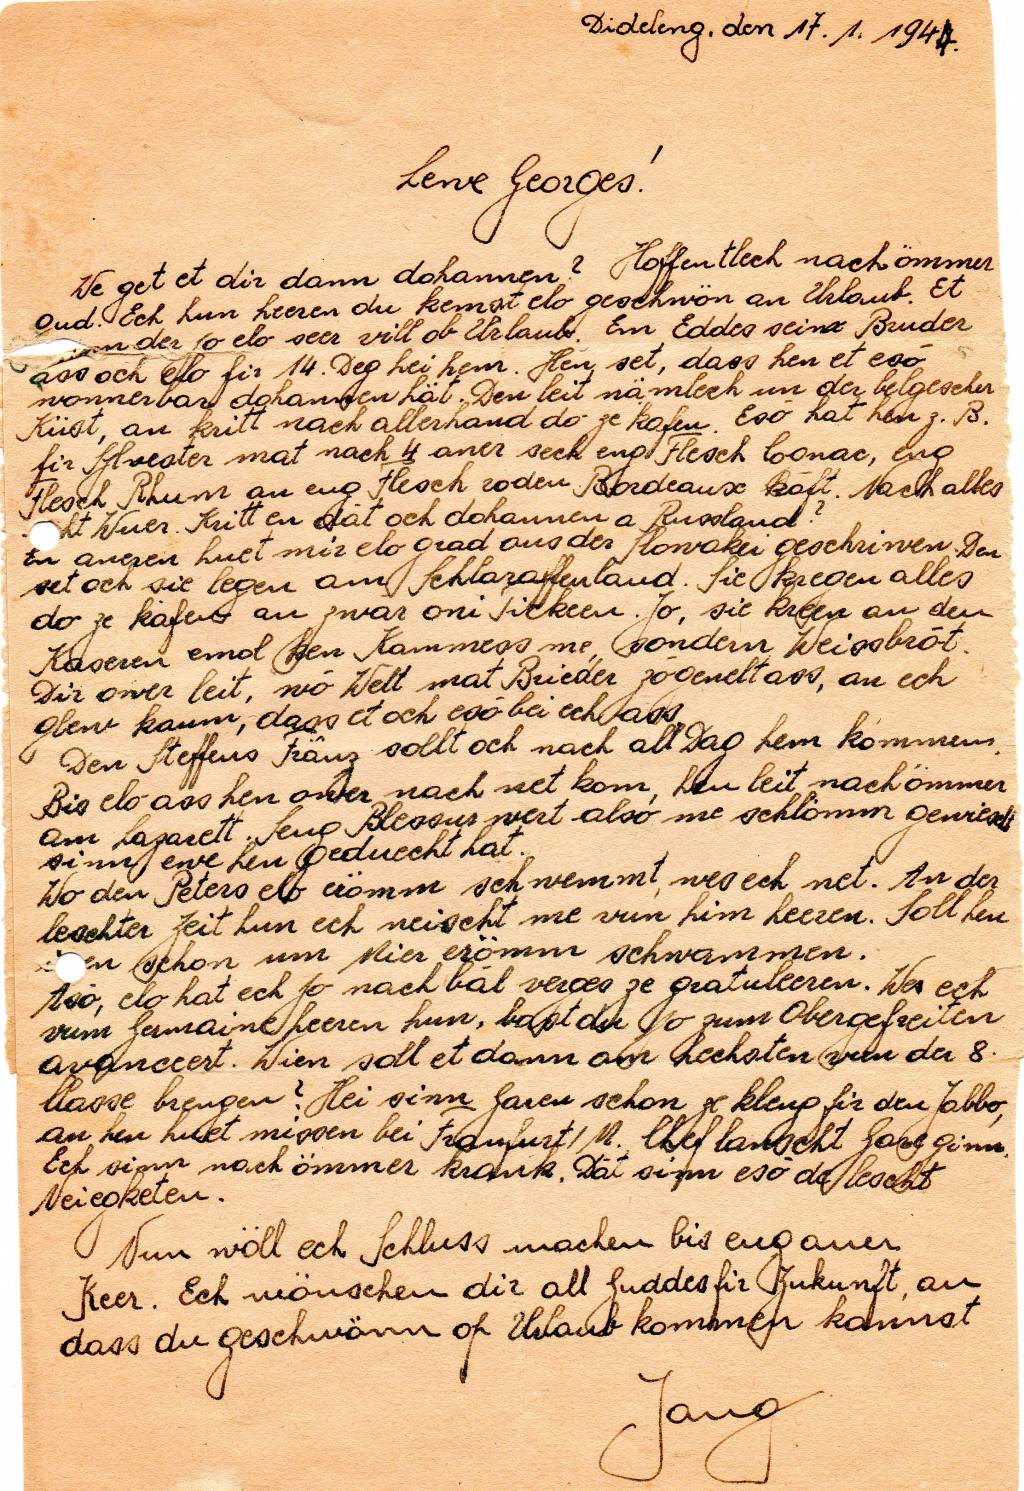 Dideleng, den 17. 1. 1944.
Lewe Georges!
We get et dir dann dohannen? Hoffentlech nach ömmer
gud. Ech hun heeren du kemst elo geschwön an Urlaub. Et
sinn der jo elo seer vill ob Urlaub. Em Eddes seine Bruder
ass och elo fir 14. Deg hei hem. Hen set, dass hen et esó
wonnerbar dohannen hät. Den leit nämlech un der belgescher
Küst, an kritt nach allerhand do ze kafen. Esó hat hen z. B.
fir Sylvester mat nach 4 aner sech eng Flesch Cognac, eng
Flesch Rhum an eng Flesch roden Bordeaux káft. Nach alles
cht Wuer. Kritt en dát och dohannen a Russland?
En aneren huet mir elo grad aus der Slowakei geschriwen. Den
set och sie legen am Schlaraffenland. Sie kregen alles
do ze káfen an zwar oni Tickeen. Jo, sie kreen an den
Kaseren emol ken Kammess me, sondern Weissbrót.
Dir ower leit, wó Welt mat Brieder zógenelt ass, an ech
glew kaum, dass et och esó bei ech ass.
Den Steffens Fränz sollt och nach all Dag hem kommen.
Bis elo ass hen ower nach net kom, hen leit nach ömmer
am Lazarett. Seng Blessur wert alsó me schlömm gewiescht
sinn ewe hen geduecht hat.
Wo den Peters elo erömm schwemmt, wes ech net. An der
leschter Zeit hun ech neischt me vun him heeren. Soll hen
schon um Mier erömm schwammen.
Asó, elo hat ech jo nach bál verges ze gratuleeren. Wes ech
vum Germaine heeren hun, bast du jo zum Obergefreiten
avanceert. Wien soll et dann am hechsten vun der 8.
Classe brengen? Hei sinn Garen schon ze kleng fir den Jabbo,
an hen huet missen bei Frankfurt/M. Chef lanscht Gare ginn.
Ech sinn nach ömmer krank. Dát sinn esó dé lescht
Neiegketen.
Nun wöll ech Schluss machen bis eng aner
Keer. Ech wönschen dir all Guddes fir Zukunft, an
dass du geschwönn op Urlaub kommen kannst
Jang